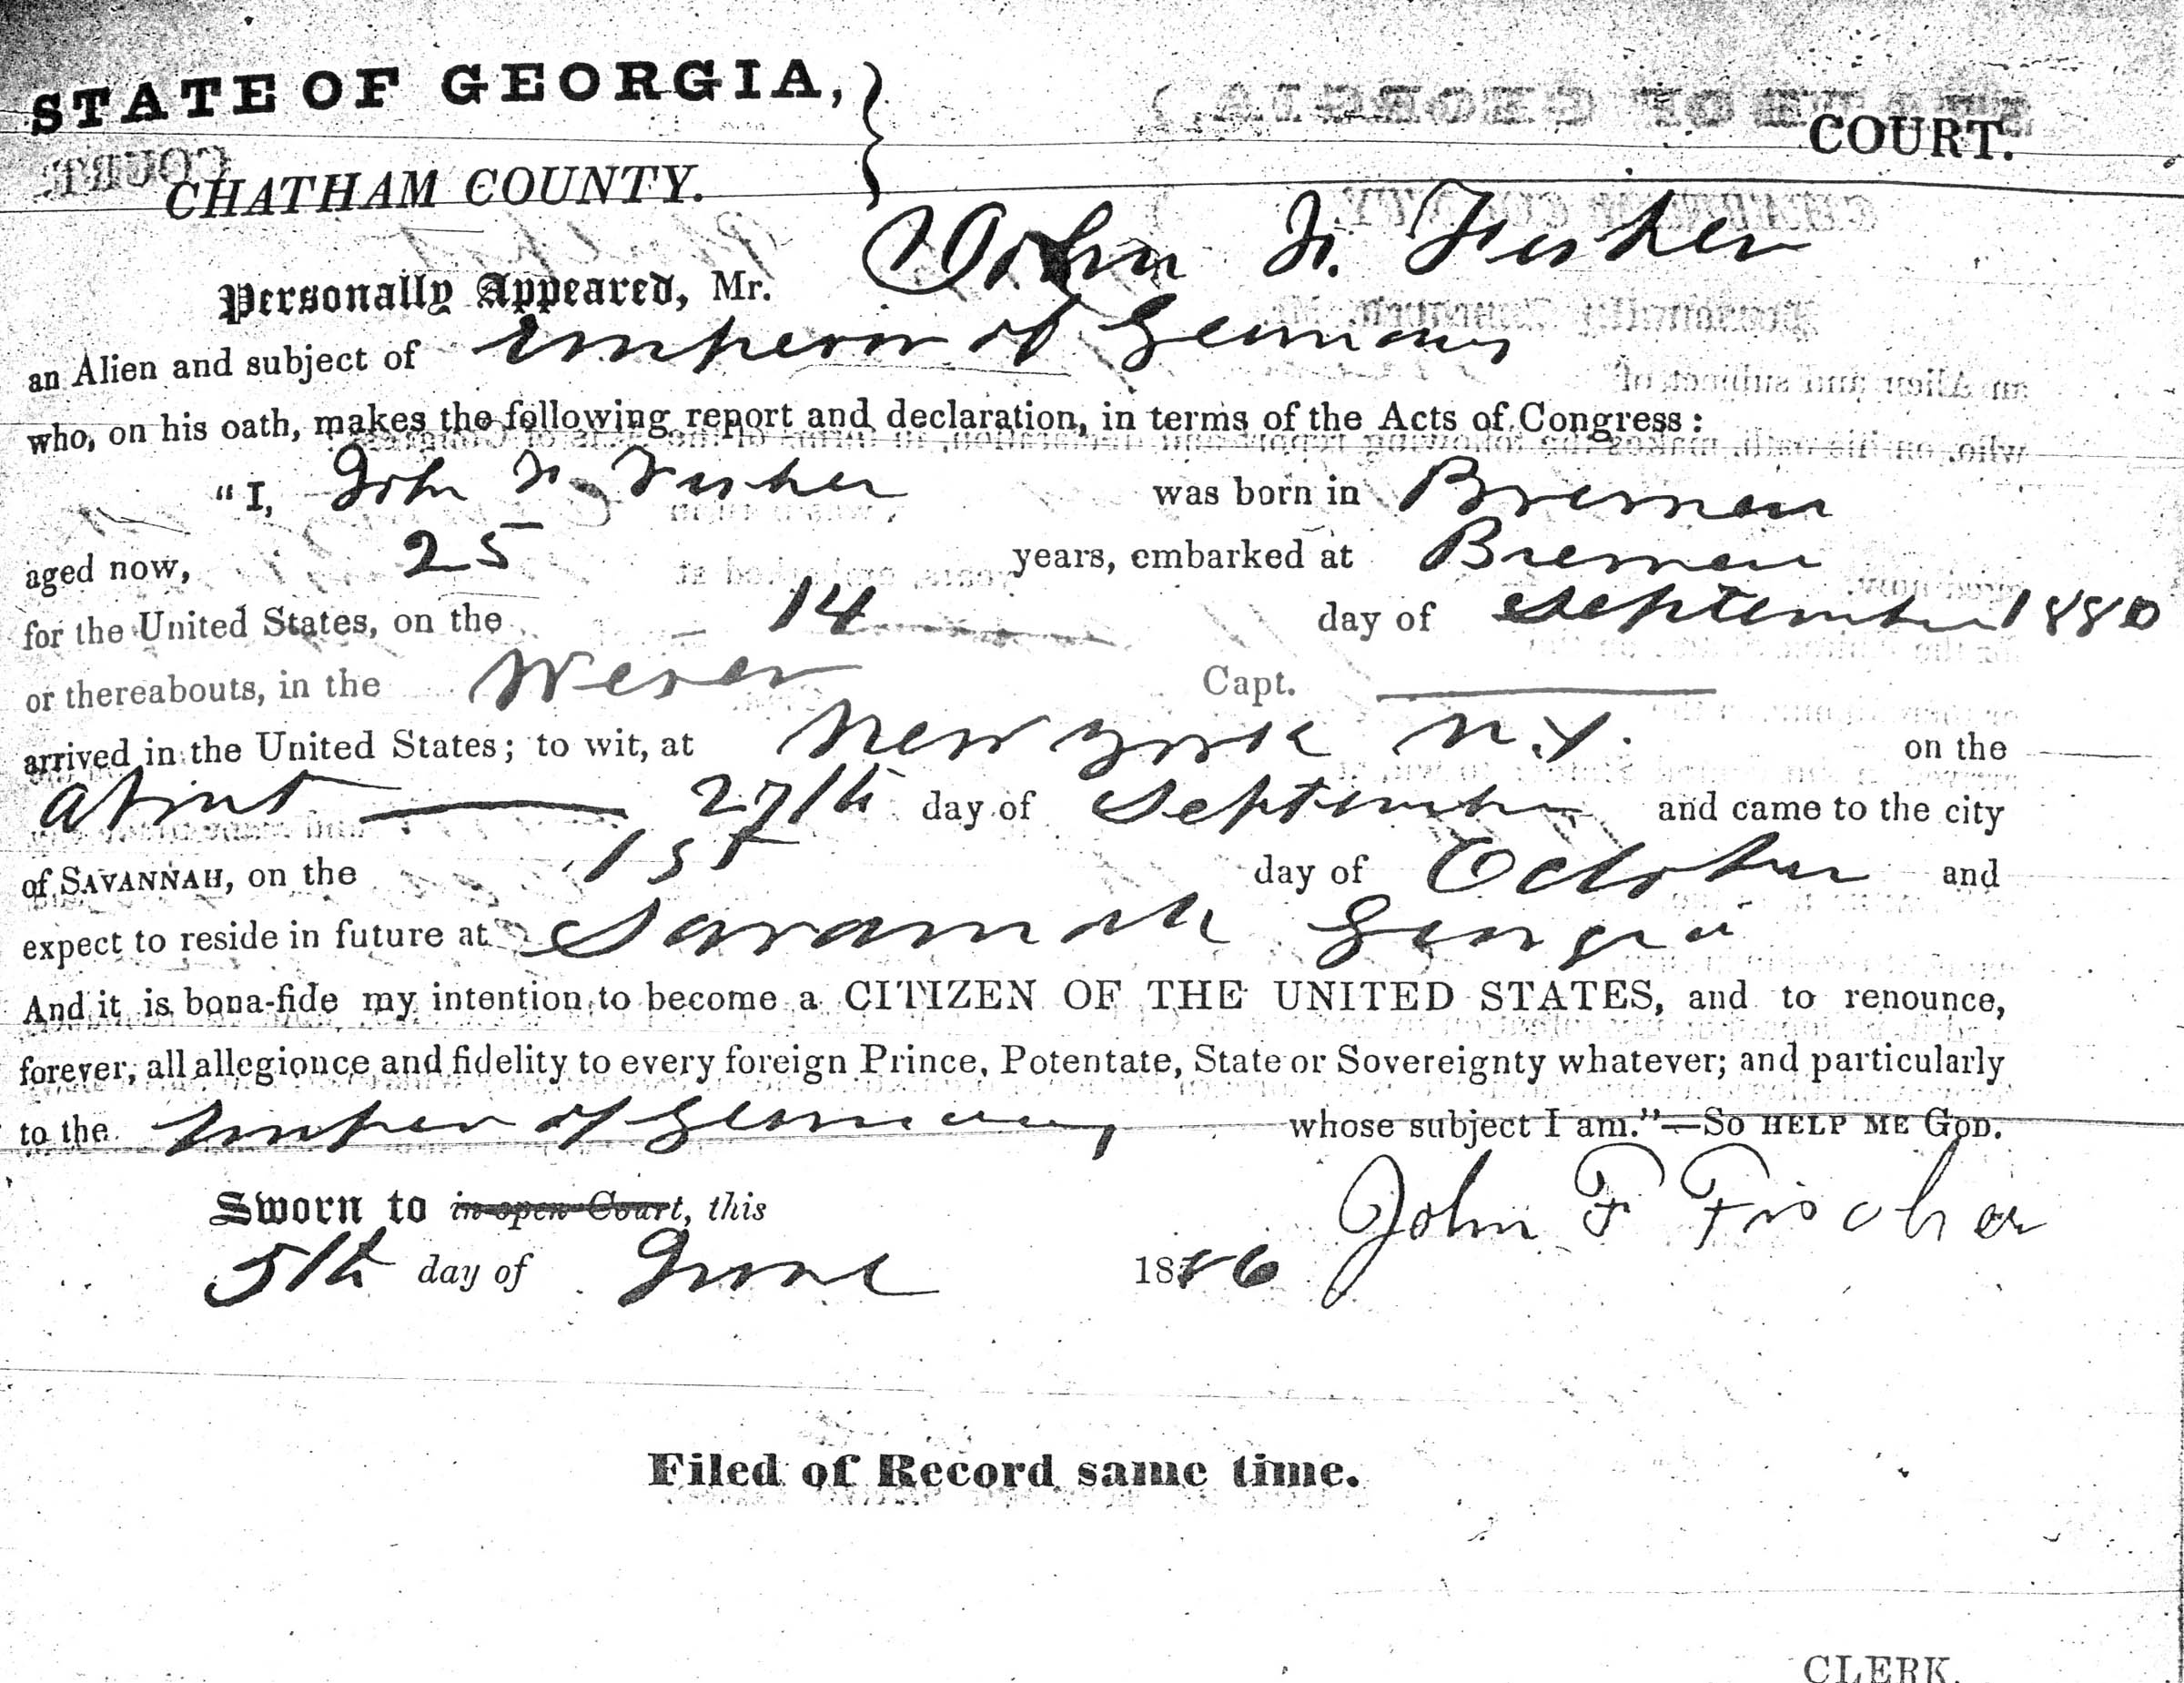 STATE OF GEORGIA,
COURT.
CHATHAM COUNTY.
Personally Appeared, Mr. John F. Fisher
an Alien and subject of Emperor of Germany
who, on his oath, makes the following report and declaration, in terms of the Acts of Congress:
"I, John F. Fisher was born in Bremen
aged now, 25 years, embarked at Bremen
for the United States, on the 14 day of September 1880
or thereabouts, in the Weser Capt.
arrived in the United States; to wit, at New York N.Y. on the
about 27th day of September and came to the city
of SAVANNAH, on the 1st day of October and
expect to reside in future at Savannah Georgia
And it is bona-fide my intention to become a CITIZEN OF THE UNITED STATES, and to renounce,
forever, all allegionce and fidelity to every foreign Prince, Potentate, State or Sovereignty whatever; and particularly
to the Emperor of Germany, whose subject I am."—So HELP ME GOD.
Sworn to in open Court, this
John F Fischer
5th day of June 1886
Filed of Record same time.
CLERK.